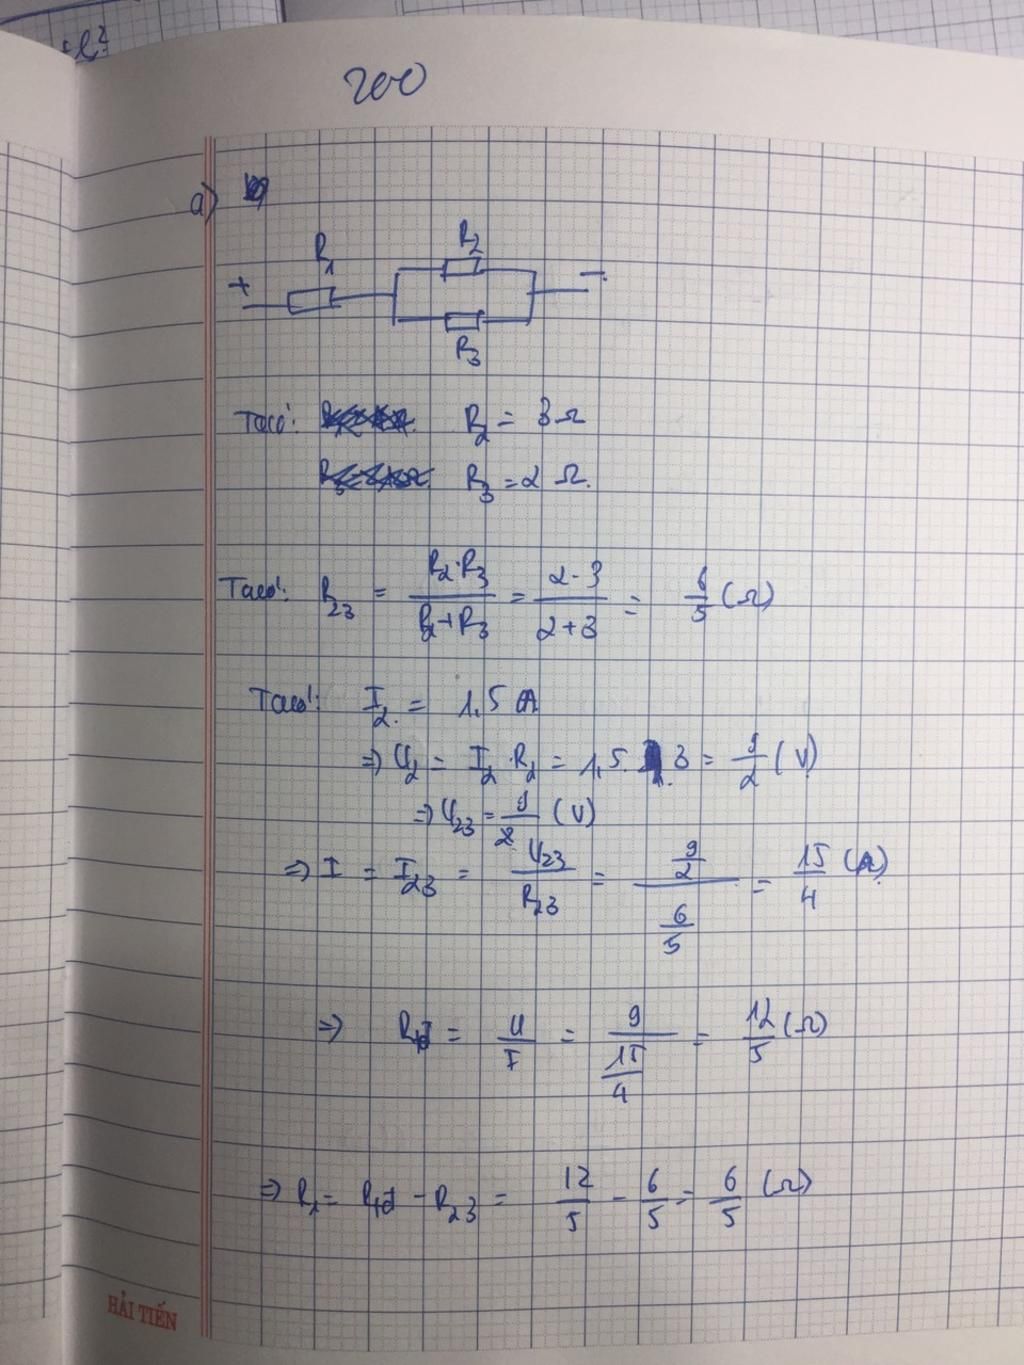 200
a)
R₁
R₂
+
-
R₃
Ta có: R₂ = 3Ω
R₃ = 2 Ω.
Ta có: R₂₃ = (R₂.R₃)/(R₂+R₃) = (2.3)/(2+3) = 6/5 (Ω)
Ta có: I₂ = 1,5 A
=> U₂ = I₂.R₂ = 1,5.3 = 9/2 (V)
=> U₂₃ = 9/2 (V)
=> I = I₂₃ = U₂₃/R₂₃ = (9/2)/(6/5) = 15/4 (A)
=> Rtđ = U/I = 9/(15/4) = 12/5 (Ω)
=> R₁ = Rtđ - R₂₃ = 12/5 - 6/5 = 6/5 (Ω)
HẢI TIẾN